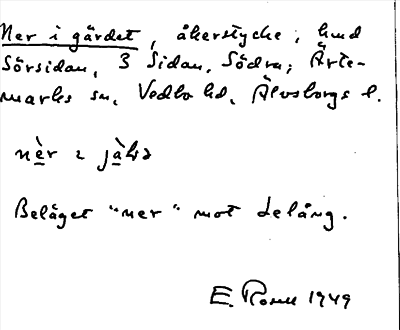 Ner i gärdet, åkerstycke, hmd
Sörsidan, 3 Sidan, Södra; Ärte-
marks sn, Vedbo hd, Älvsborgs l.
nèr i
Beläget "ner" mot Delång.
E. Rosell 1949